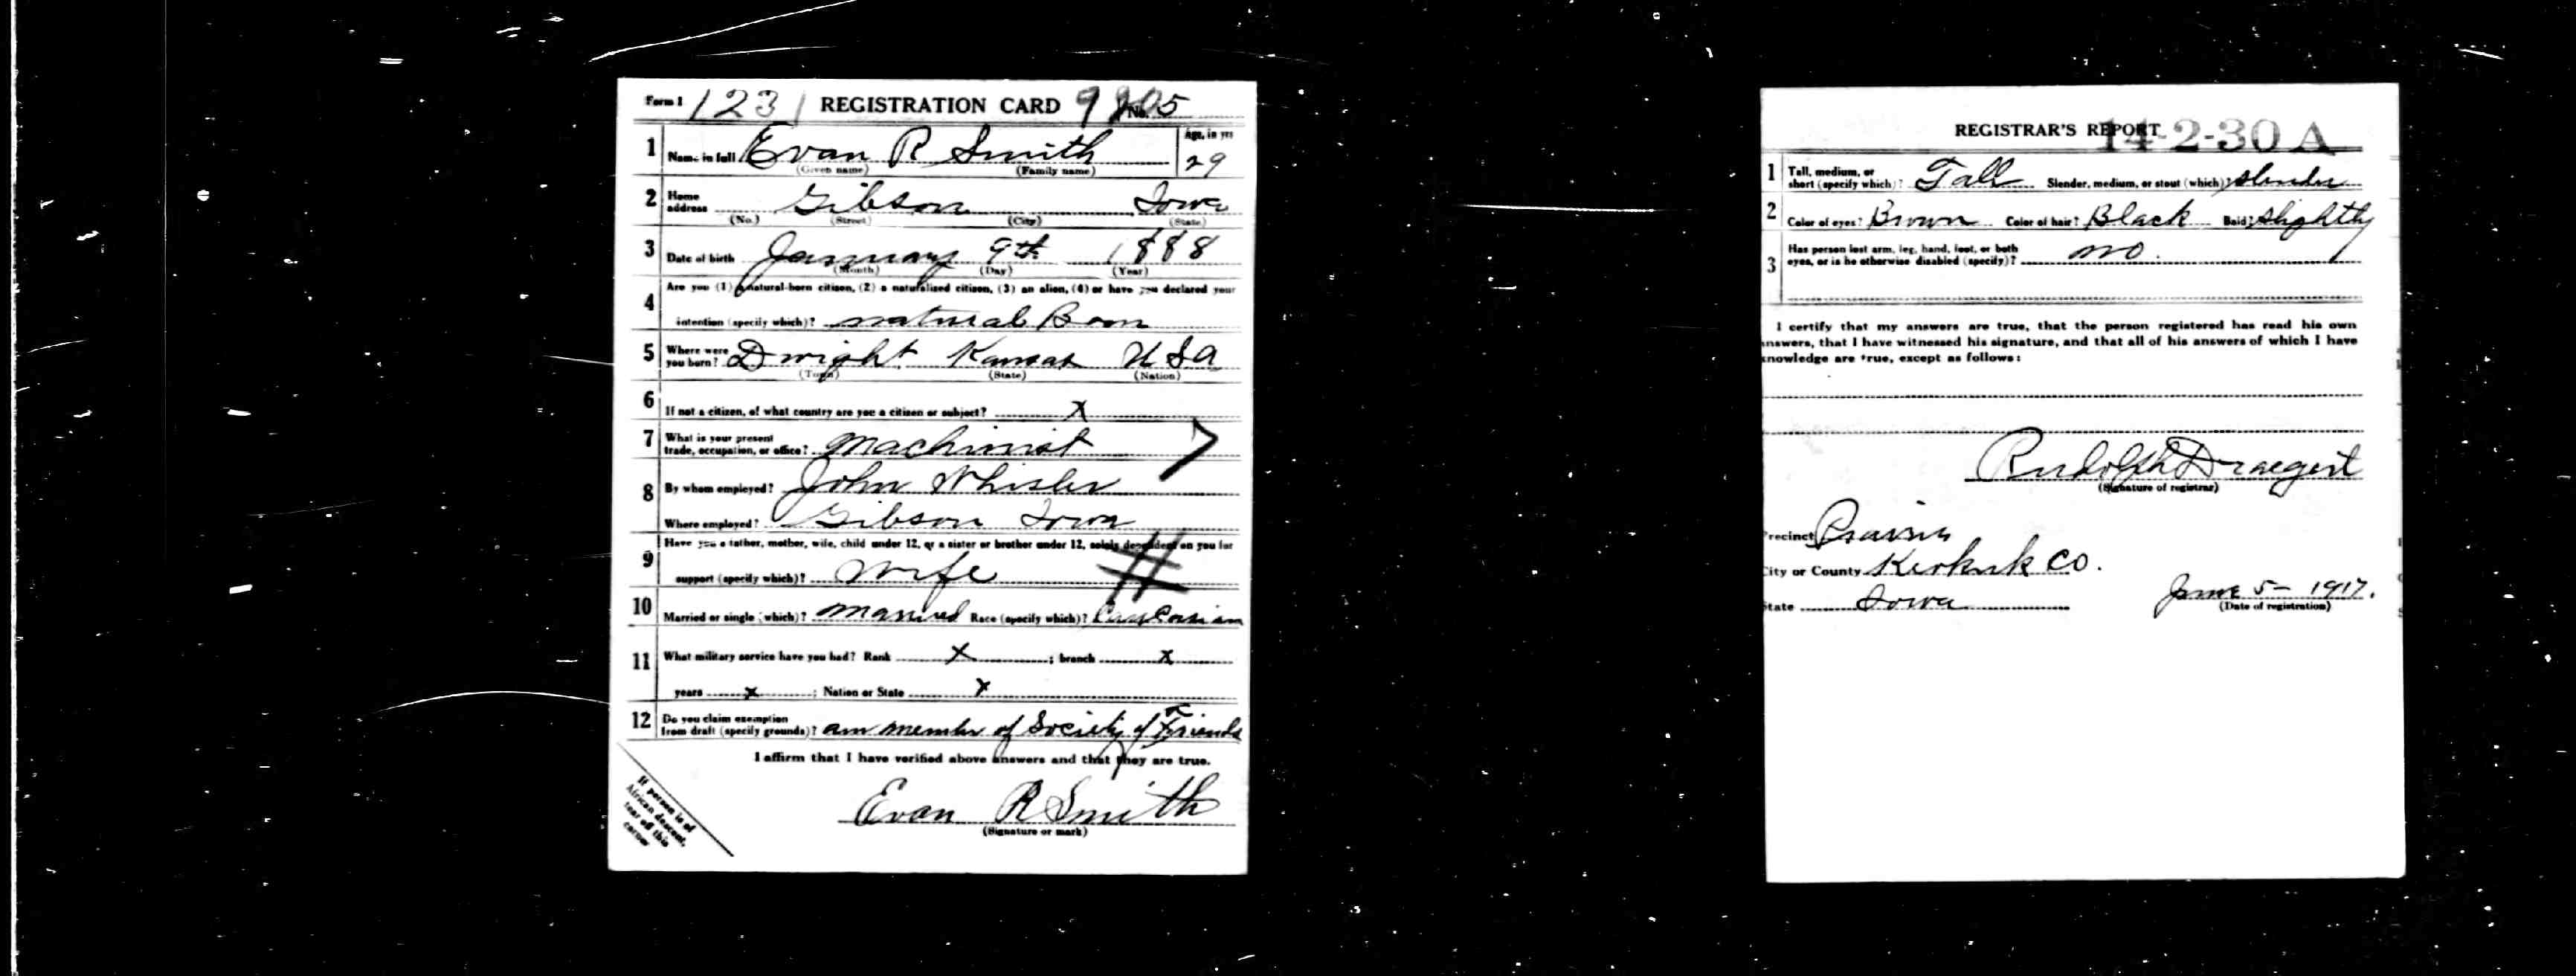 Form 1 1231 REGISTRATION CARD No. 5
1 Name in full Evan R Smith Age, in yrs 29
(Given name) (Family name)
2 Home address Gibson Iowa
(No.) (Street) (City) (State)
3 Date of birth January 9th 1888
(Month) (Day) (Year)
4 Are you (1) a natural-born citizen, (2) a naturalized citizen, (3) an alien, (4) or have you declared your
intention (specify which)? natural Born
5 Where were you born? Dwight Kansas USA
(Town) (State) (Nation)
6 If not a citizen, of what country are you a citizen or subject? X
7 What is your present trade, occupation, or office? Machinist
8 By whom employed? John Whisler
Where employed? Gibson Iowa
9 Have you a father, mother, wife, child under 12, or a sister or brother under 12, solely dependent on you for
support (specify which)? Wife
10 Married or single (which)? Married Race (specify which)? Caucasian
11 What military service have you had? Rank X ; branch X
years X ; Nation or State X
12 Do you claim exemption from draft (specify grounds)? am member of Society of Friends
I affirm that I have verified above answers and that they are true.
Evan R Smith
(Signature or mark)
If person is of
African descent,
tear off this
corner
REGISTRAR'S REPORT 14-2-30 A
1 Tall, medium, or short (specify which)? Tall Slender, medium, or stout (which)? slender
2 Color of eyes? Brown Color of hair? Black Bald? slightly
3 Has person lost arm, leg, hand, foot, or both eyes, or is he otherwise disabled (specify)? no.
I certify that my answers are true, that the person registered has read his own
answers, that I have witnessed his signature, and that all of his answers of which I have
knowledge are true, except as follows:
Rudolph Draegert
(Signature of registrar)
Precinct Prairie
City or County Keokuk Co.
State Iowa June 5- 1917.
(Date of registration)